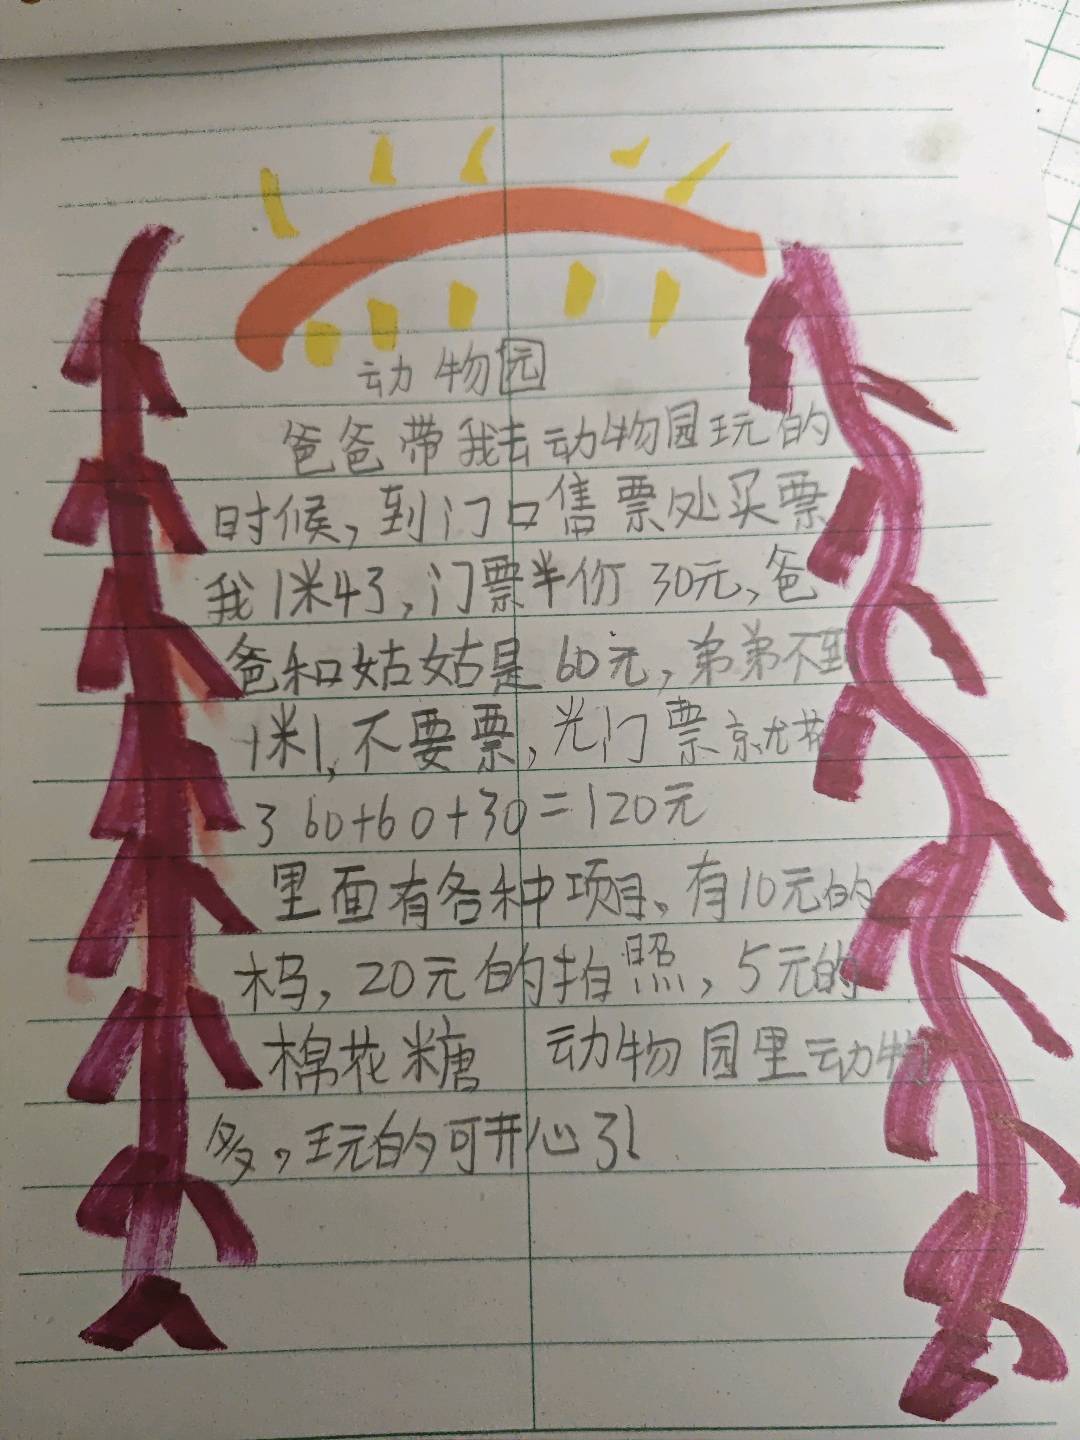 动物园
爸爸带我去动物园玩的
时候,到门口售票处买票
我1米43,门票半价30元,爸
爸和姑姑是60元,弟弟不到
1米1,不要票,光门票就花
了60+60+30=120元
里面有各种项目、有10元的
20元的拍照,5元的
棉花糖 动物园里动物
多,玩的可开心了!